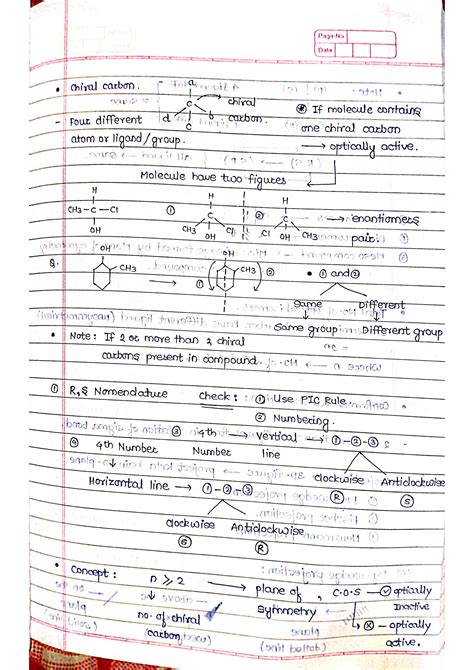 Page No.
Date
• Chiral carbon.
a
c
d
b
chiral
carbon.
- Four different
atom or ligand/group.
⊛ If molecule contains
one chiral carbon
→ optically active.
Molecule have two figures
H
CH3-C-Cl
OH
①
H
C
CH3
Cl
OH
②
H
C
Cl
CH3
OH
→ enantiomers
pair
Q.
OH
CH3
→
①
OH
CH3
②
• ① and ②
Same
Different
Same group
Different group
• Note: If 2 or more than 2 chiral
carbons present in compound.
① R,S Nomendature
Check: ① Use PIC Rule
② Numbering.
③ 4th → Vertical → ①-②-③
Number
line
④ 4th Number
clockwise
Anticlockwise
Horizontal line → ①-②-③
Ⓡ
Ⓢ
clockwise
Anticlockwise
Ⓢ
Ⓡ
• Concept:
n ⩾ 2
→ plane of, C.O.S → optically
Symmetry
Inactive
no. of chiral
(carbon)
→ ⊗ - optically
active.